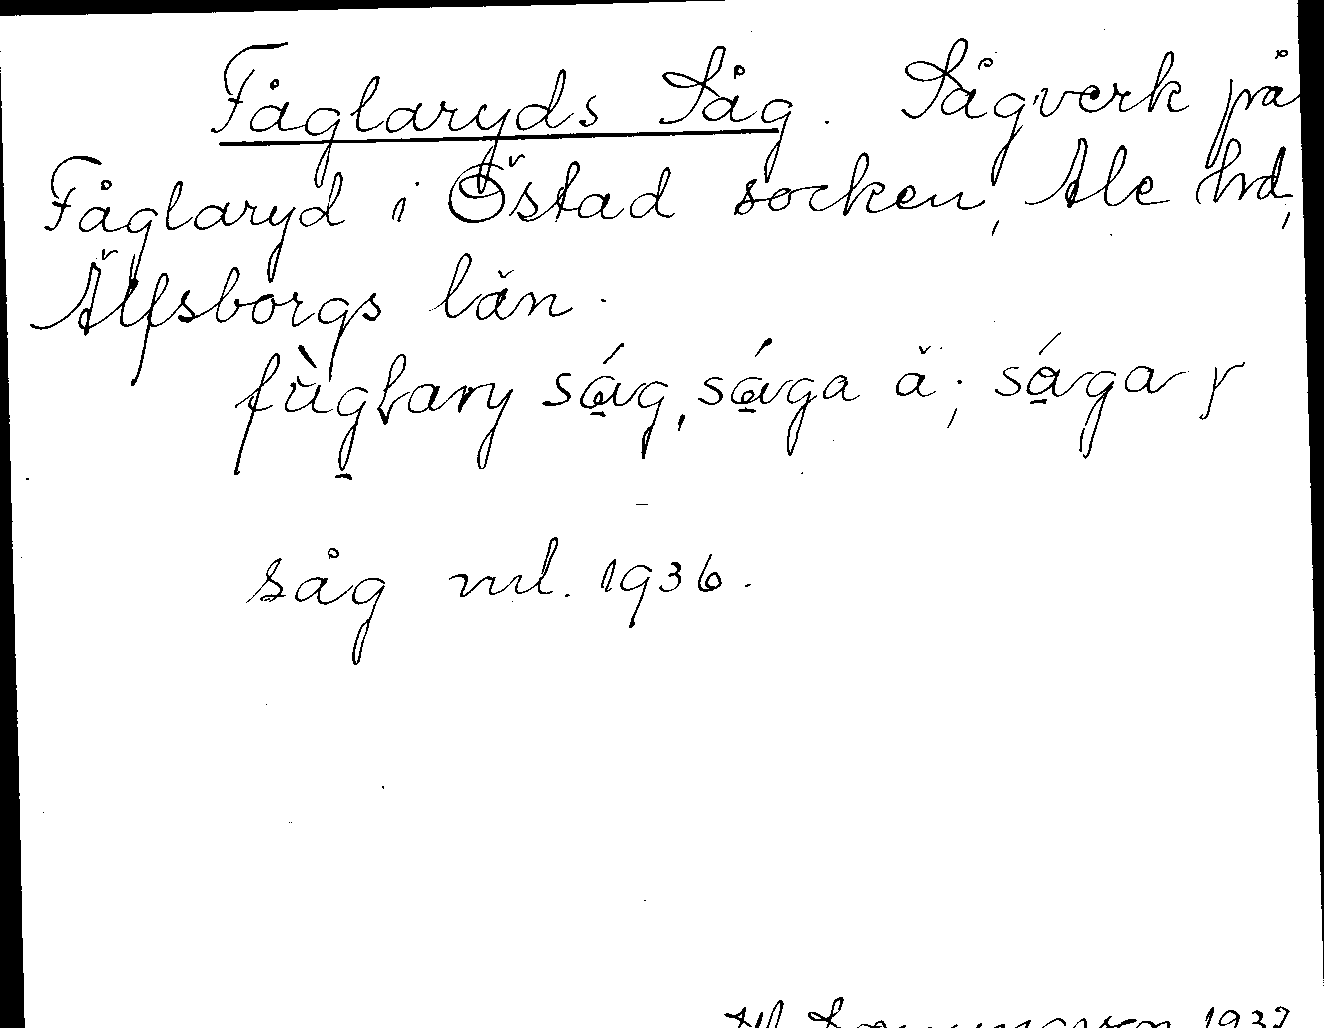 Fåglaryds Såg. Sågverk på
Fåglaryd i Östad socken, Ale hrd,
Älfsborgs län.
såg, såga ä; såga
såg vid. 1936.
1937